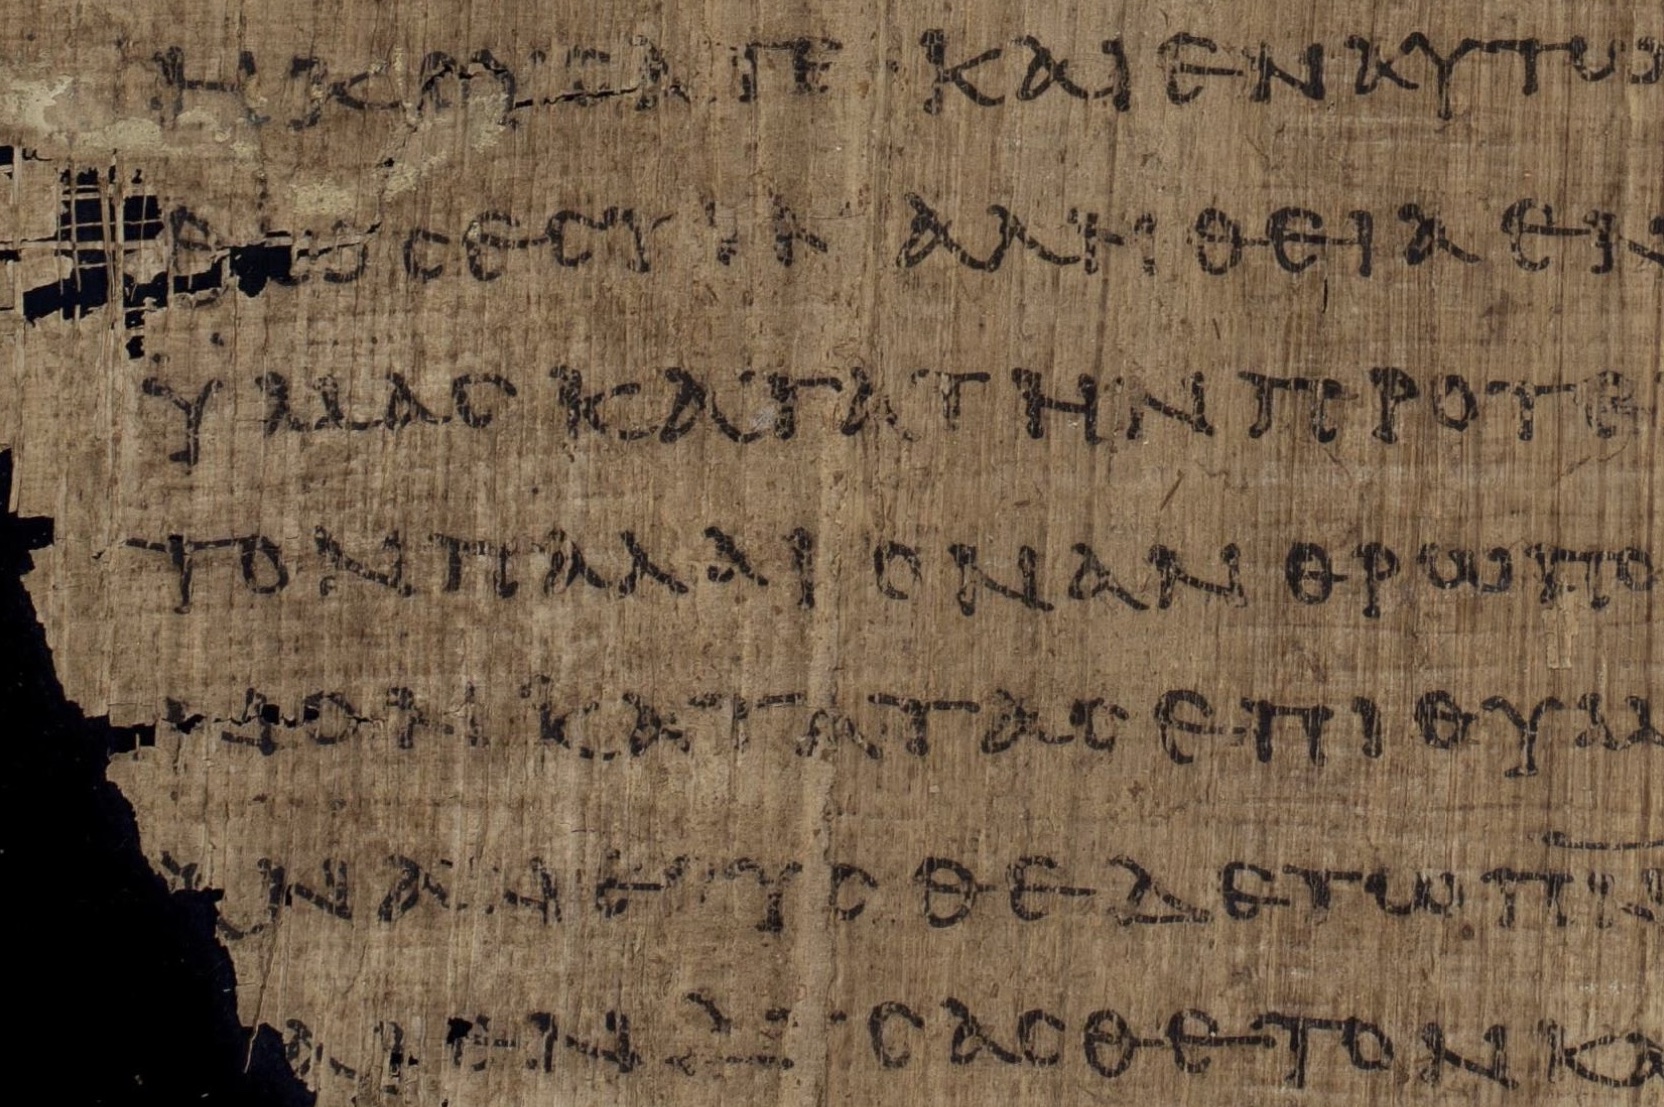 ΗΚΟΥϹΑΤΕ ΚΑΙ ΕΝ ΑΥΤΩ
ΘΩϹ ΕϹΤΙΝ ΑΛΗΘΕΙΑ ΕΝ
ΥΜΑϹ ΚΑΤΑ ΤΗΝ ΠΡΟΤΕ
ΤΟΝ ΠΑΛΑΙΟΝ ΑΝΘΡΩΠΟ
ΝΟΝ ΚΑΤΑ ΤΑϹ ΕΠΙΘΥΜ
ΝΑΝΕΟΥϹΘΕ ΔΕ ΤΩ Π̅Ν̅
ΑΙ ΕΝΔΥϹΑϹΘΕ ΤΟΝ ΚΑ